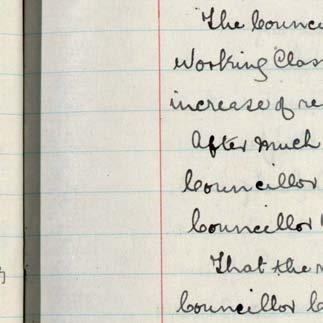 The Counc
Working Clas
increase of re
After much
Councillor
Councillor
That the
Councillor